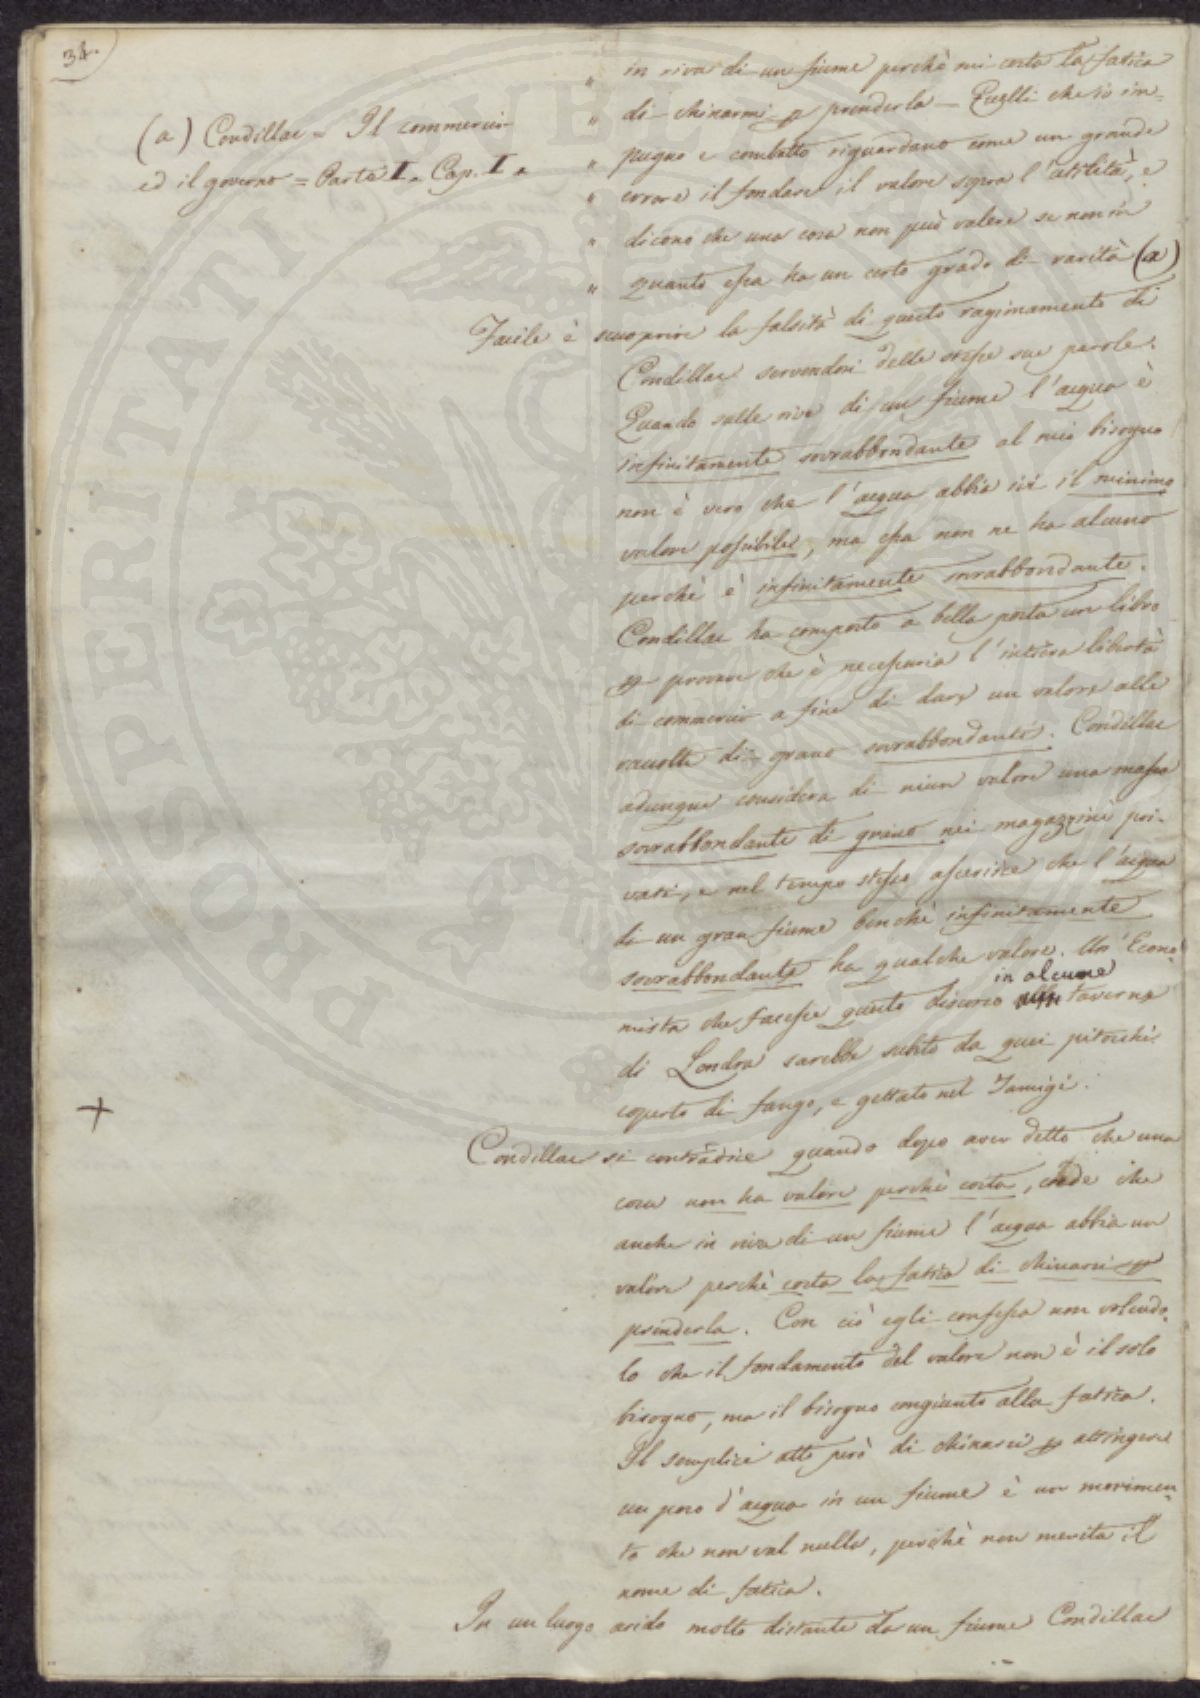 34.
(a) Condillac = Il commercio
ed il governo = Parte I. Cap. I.
" in riva di un fiume perchè mi costa la fatica
" di chinarmi p prenderla — Quelli che io im=
" pugno e combatto riguardano come un grande
" errore il fondare il valore sopra l'utilità, e
" dicono che una cosa non può valere se non in
" quanto essa ha un certo grado di rarità (a)
Facile è scuoprire la falsità di questo ragionamento di
Condillac servendosi delle stesse sue parole.
Quando sulle rive di un fiume l'acqua è
infinitamente sovrabbondante al mio bisogno
non è vero che l'acqua abbia ivi il minimo
valore possibile, ma essa non ne ha alcuno
perchè è infinitamente sovrabbondante.
Condillac ha composto a bella posta un libro
p provare che è necessaria l'intiera libertà
di commercio a fine di dare un valore alle
raccolte di grano sovrabbondanti. Condillac
adunque considera di niun valore una massa
sovrabbondante di grano nei magazzini pri-
vati, e nel tempo stesso asserisce che l'acqua
di un gran fiume benchè infinitamente
sovrabbondante ha qualche valore. Un' Econo-
in alcune
mista che facesse questo discorso taverne
di Londra sarebbe subito da quei pitocchi
coperto di fango, e gettato nel Tamigi.
+
Condillac si contradice quando dopo aver detto che una
cosa non ha valore perchè costa, crede che
anche in riva di un fiume l'acqua abbia un
valore perchè costa la fatica di chinarsi p
prenderla. Con ciò egli confessa non volendo-
lo che il fondamento del valore non è il solo
bisogno, ma il bisogno congiunto alla fatica.
Il semplice atto però di chinarsi p attingere
un poco d'acqua in un fiume è un movimen-
to che non val nulla, perchè non merita il
nome di fatica.
In un luogo arido molto distante da un fiume Condillac
PROSPERITATI PUBL